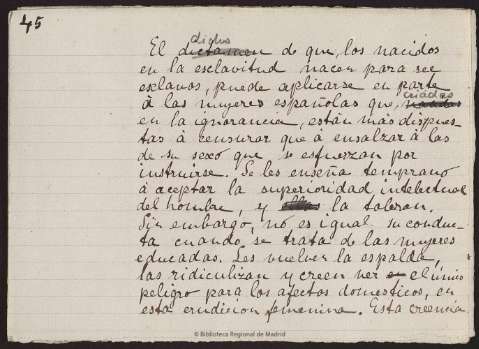 45
dicho
El dictamen de que, los nacidos
en la esclavitud nacen para ser
esclavos, puede aplicarse en parte
criadas
á las mujeres españolas que,
en la ignorancia, están más dispues
tas á censurar que á ensalzar á las
de su sexo que se esfuerzan por
instruirse. Se les enseña temprano
á aceptar la superioridad intelectual
del hombre, y ellas la toleran.
Sin embargo, no es igual su conduc
ta cuando se trata de las mujeres
educadas. Les vuelven la espalda,
las ridiculizan y creen ver el único
peligro para los afectos domesticos, en
esta erudicion femenina. Esta creencia
© Biblioteca Regional de Madrid